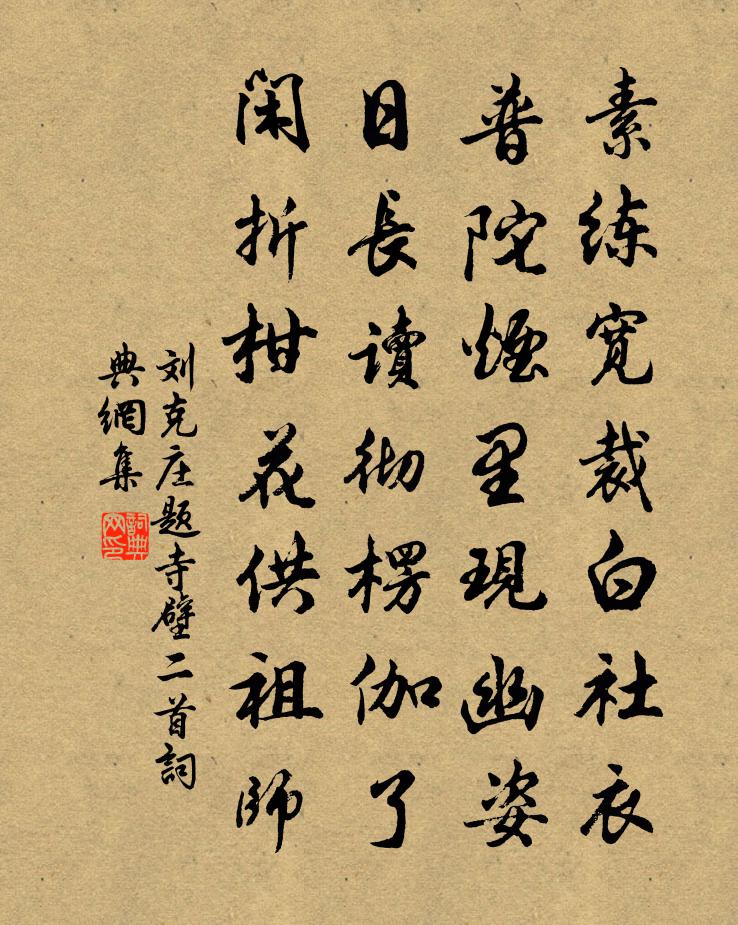 素练宽裁白社衣
普陀烟里現幽姿
日長讀彻楞伽了
闲折柑花供祖師
刘克庄题寺壁二首詞
典網集
詞典
网印